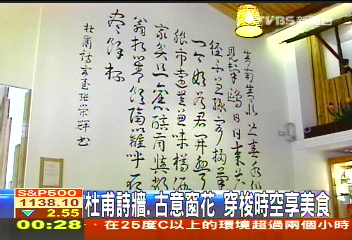 TVBS
舍南舍北皆春水但
見群鷗日日來花
徑不曾緣客掃蓬門
今始為君開盤飧
市遠無兼味樽酒
家貧只舊醅肯與鄰
翁相對飲隔籬呼取
盡餘杯
杜甫詩客至
S&P500
1138.10
▼ 2.55
杜甫詩牆.古意窗花 穿梭時空享美食
00:28
在25度C以上的環境超過兩小時